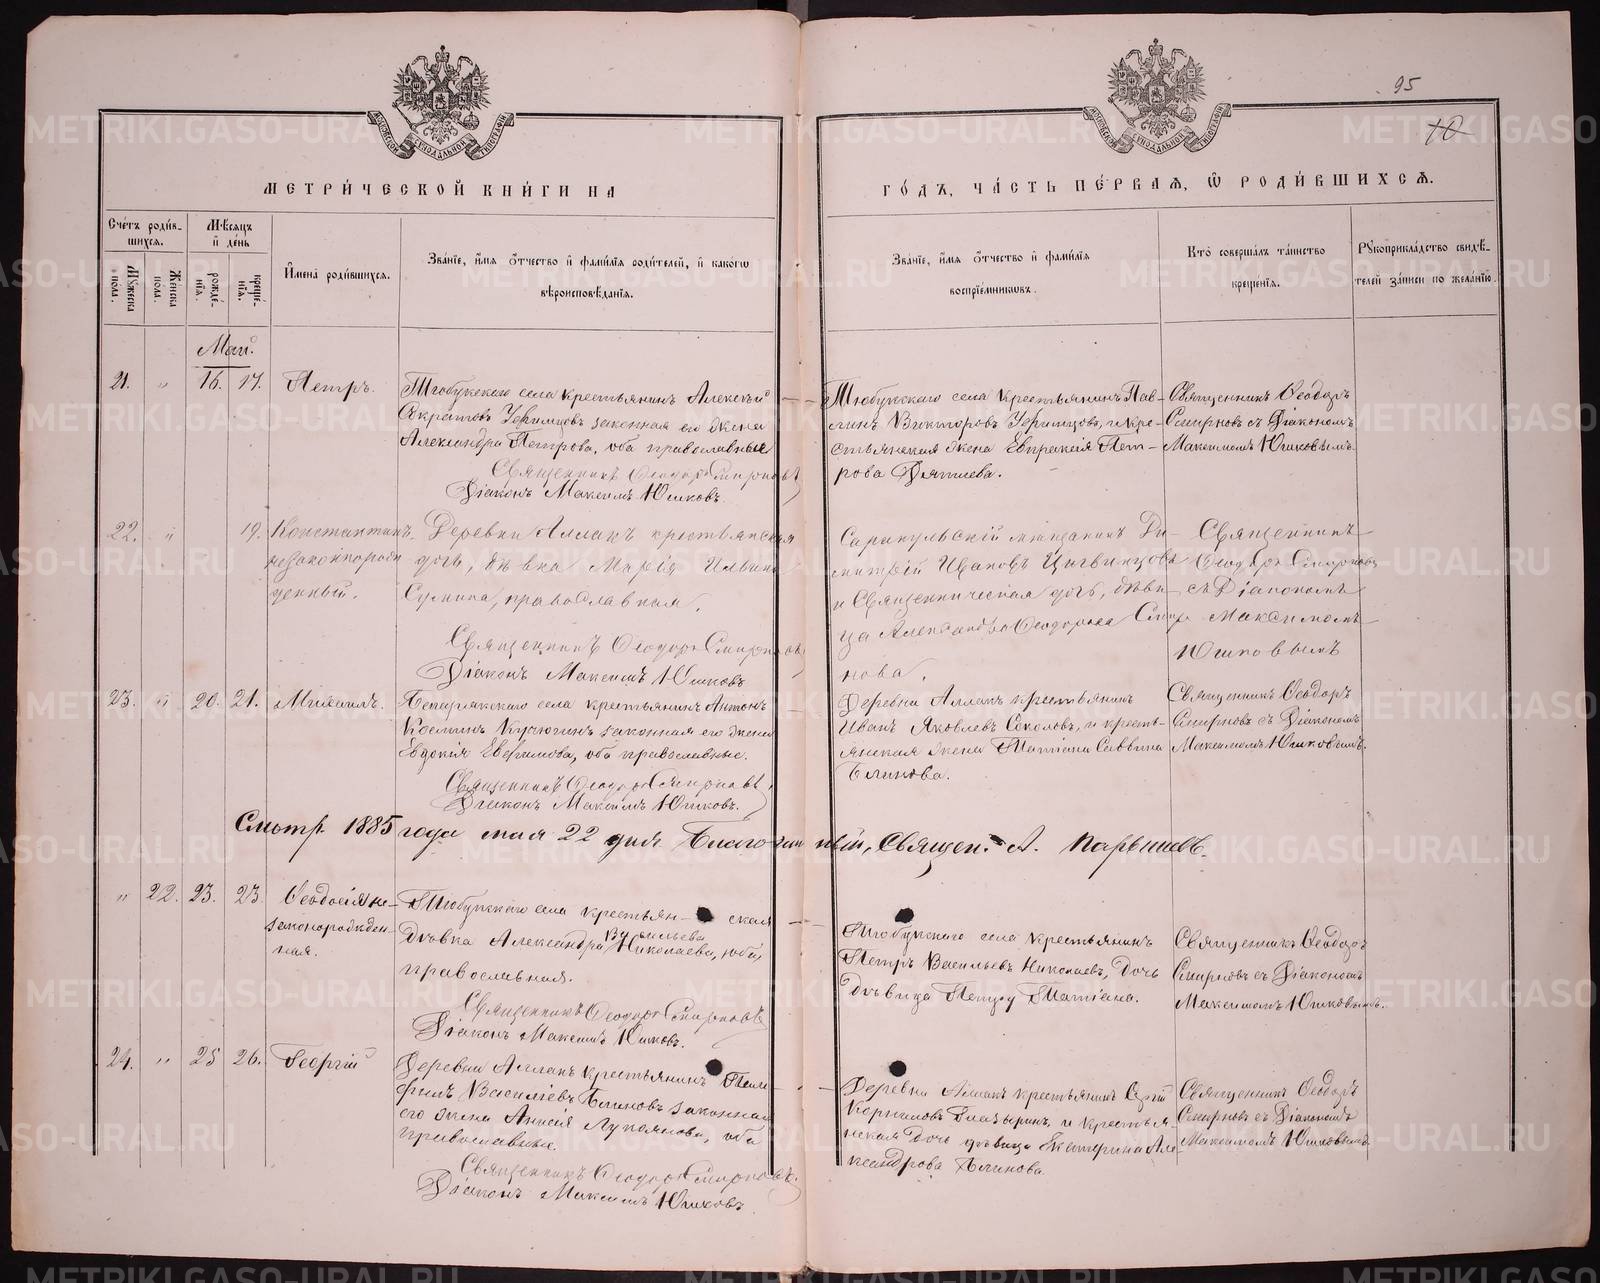 95
10
МОСКОВСКОЙ СѴНОДАЛЬНОЙ ТИПОГРАФІИ
МОСКОВСКОЙ СѴНОДАЛЬНОЙ ТИПОГРАФІИ
МЕТРИ́ЧЕСКОЙ КНИ́ГИ НА
ГО́ДЪ, ЧА́СТЬ ПЕ́РВАЯ, Ѡ РОДИ́ВШИХСЯ.
Сче́тъ роди́в-
шихся.
Мꙋ́жеска по́ла.
Же́нска по́ла.
Мѣ́сяцъ
и҆ де́нь
рожде́-
нїѧ.
креще́-
нїѧ.
И҆мена̀ роди́вшихся.
Зва́нїе, и҆́мѧ ѻ҆́тчество и҆ фами́лїѧ роди́телей, и҆ како́гѡ
вѣроисповѣ́данїѧ.
Зва́нїе, и҆́мѧ ѻ҆́тчество и҆ фами́лїѧ
воспрїе́мникѡвъ.
Кто̀ соверша́лъ та́инство
креще́нїѧ.
Рꙋкоприкла́дство свидѣ́-
телей за́писи по жела́нїю.
Маій.
21. „ 16. 17. Петръ.
Тюбукскаго села крестьянинъ Алексѣй
Ефимцовъ законная его жена
Александра Петрова, оба православные
Священникъ Ѳеодоръ Смирновъ
Діаконъ Максимъ Юшковъ.
Тюбукскаго села крестьянинъ Пав-
линъ Викторовъ Ефимцовъ, и кре-
стьянская жена Евпраксія Пет-
рова Дятлева.
Священникъ Ѳеодоръ
Смирновъ съ Діакономъ
Максимомъ Юшковымъ.
22. „ 19. Константинъ
незаконнорож
денный.
Деревни Аллакъ крестьянская
дочь, дѣвка Марія Ильина
православная.
Священникъ Ѳеодоръ Смирновъ
Діаконъ Максимъ Юшковъ
Сарапульскій мѣщанинъ Ди-
митрій Ивановъ
и Священническая дочь, дѣви-
ца Александра Ѳеодорова Смир-
нова.
Священникъ
Ѳеодоръ Смирновъ
съ Діакономъ
Максимомъ
Юшковымъ
23. „ 20. 21. Михаилъ.
села крестьянинъ Антонъ
Козминъ законная его жена
Евдокія Евфимова, оба православные.
Священникъ Ѳеодоръ Смирновъ
Діаконъ Максимъ Юшковъ.
Деревни Аллакъ крестьянинъ
Иванъ Яковлевъ Соколовъ, и кресть-
янская жена Татіана Саввина
Блинова.
Священникъ Ѳеодоръ
Смирновъ съ Діакономъ
Максимомъ Юшковымъ.
Смотр. 1885 года мая 22 дня Благочинный, Священ. А.
„ 22. 23. 23. Ѳеодосія не-
законорожден
ная.
Тюбукскаго села крестьян- ская
дѣвка Александра Васильева Николаева,
православная.
Священникъ Ѳеодоръ Смирновъ
Діаконъ Максимъ Юшковъ.
Тюбукскаго села крестьянинъ
Петръ Васильевъ Николаевъ, дочь
дѣвица Татіана.
Священникъ Ѳеодоръ
Смирновъ съ Діакономъ
Максимомъ Юшковымъ.
24. „ 25 26. Георгій
Деревни Аллакъ крестьянинъ
Василіевъ Блиновъ законная
его жена Анисія Лукоянова, оба
православные.
Священникъ Ѳеодоръ Смирновъ.
Діаконъ Максимъ Юшковъ.
Деревни Аллакъ крестьянинъ
Корниловъ Глазыринъ, и крестья-
нская дочь дѣвица Екатерина Але-
ксандрова Блинова.
Священникъ Ѳеодоръ
Смирновъ съ Діакономъ
Максимомъ Юшковымъ.
METRIKI.GASO-URAL.RU